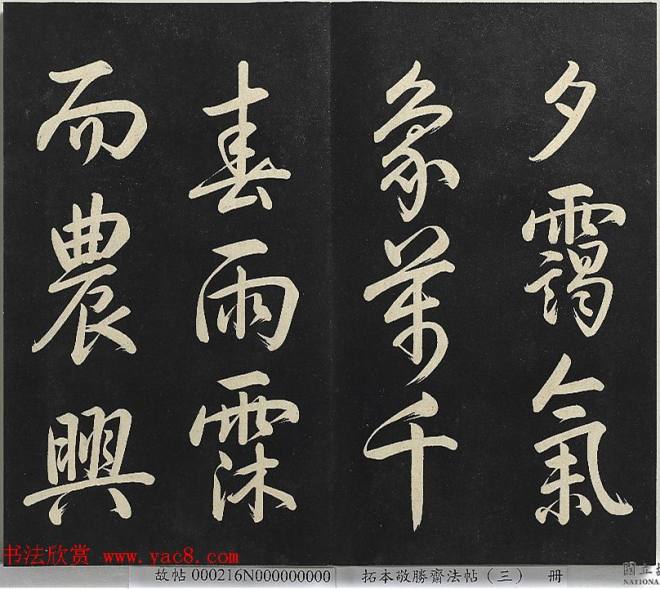 夕靄氣
象萬千
春雨霂
而農興
书法欣赏 www.yac8.com
故帖 000216N000000000 拓本敬勝齋法帖(三) 冊
國立故
NATIONAL